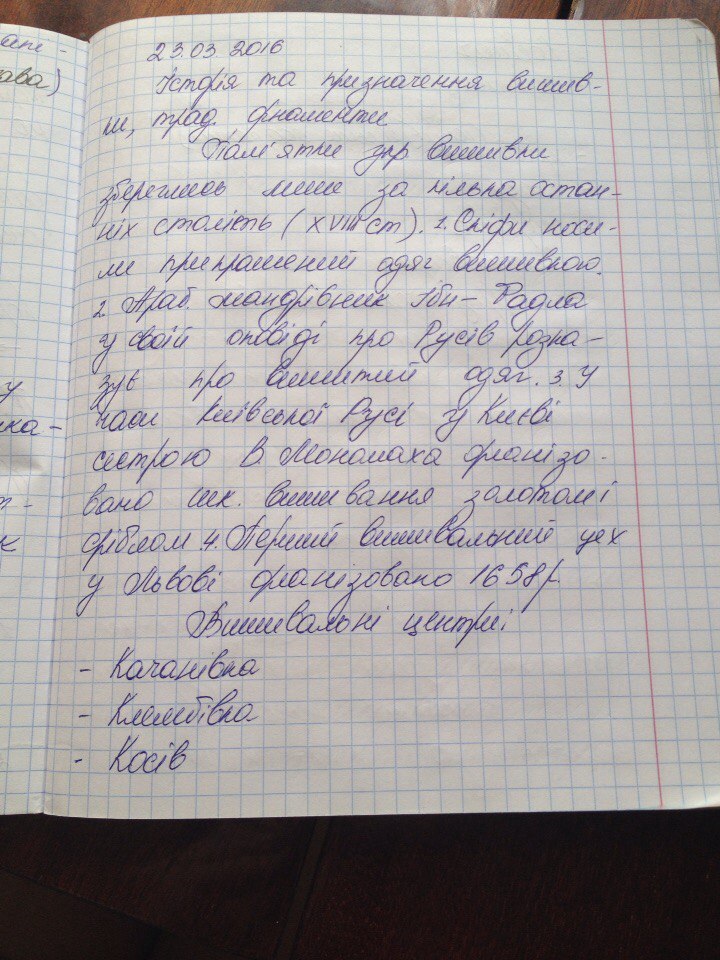 апе-
ава)
у
ка-
т-
к
23.03 2016
Історія та призначення вишив-
ки, трад. орнаменти
Пам'ятки укр вишивки
збереглись лише за кілька остан-
ніх століть (XVIII ст). 1. Скіфи носи-
ли прикрашений одяг вишивкою.
2. Араб. мандрівник Ібн-Фадла
у своїй оповіді про Русів розка-
зує про вишитий одяг. 3. У
часи Київської Русі у Києві
сестрою В. Мономаха організо-
вано шк. вишивання золотом і
сріблом 4. Перший вишивальний цех
у Львові організовано 1658 р.
Вишивальні центри:
- Качанівка
- Клембівка
- Косів